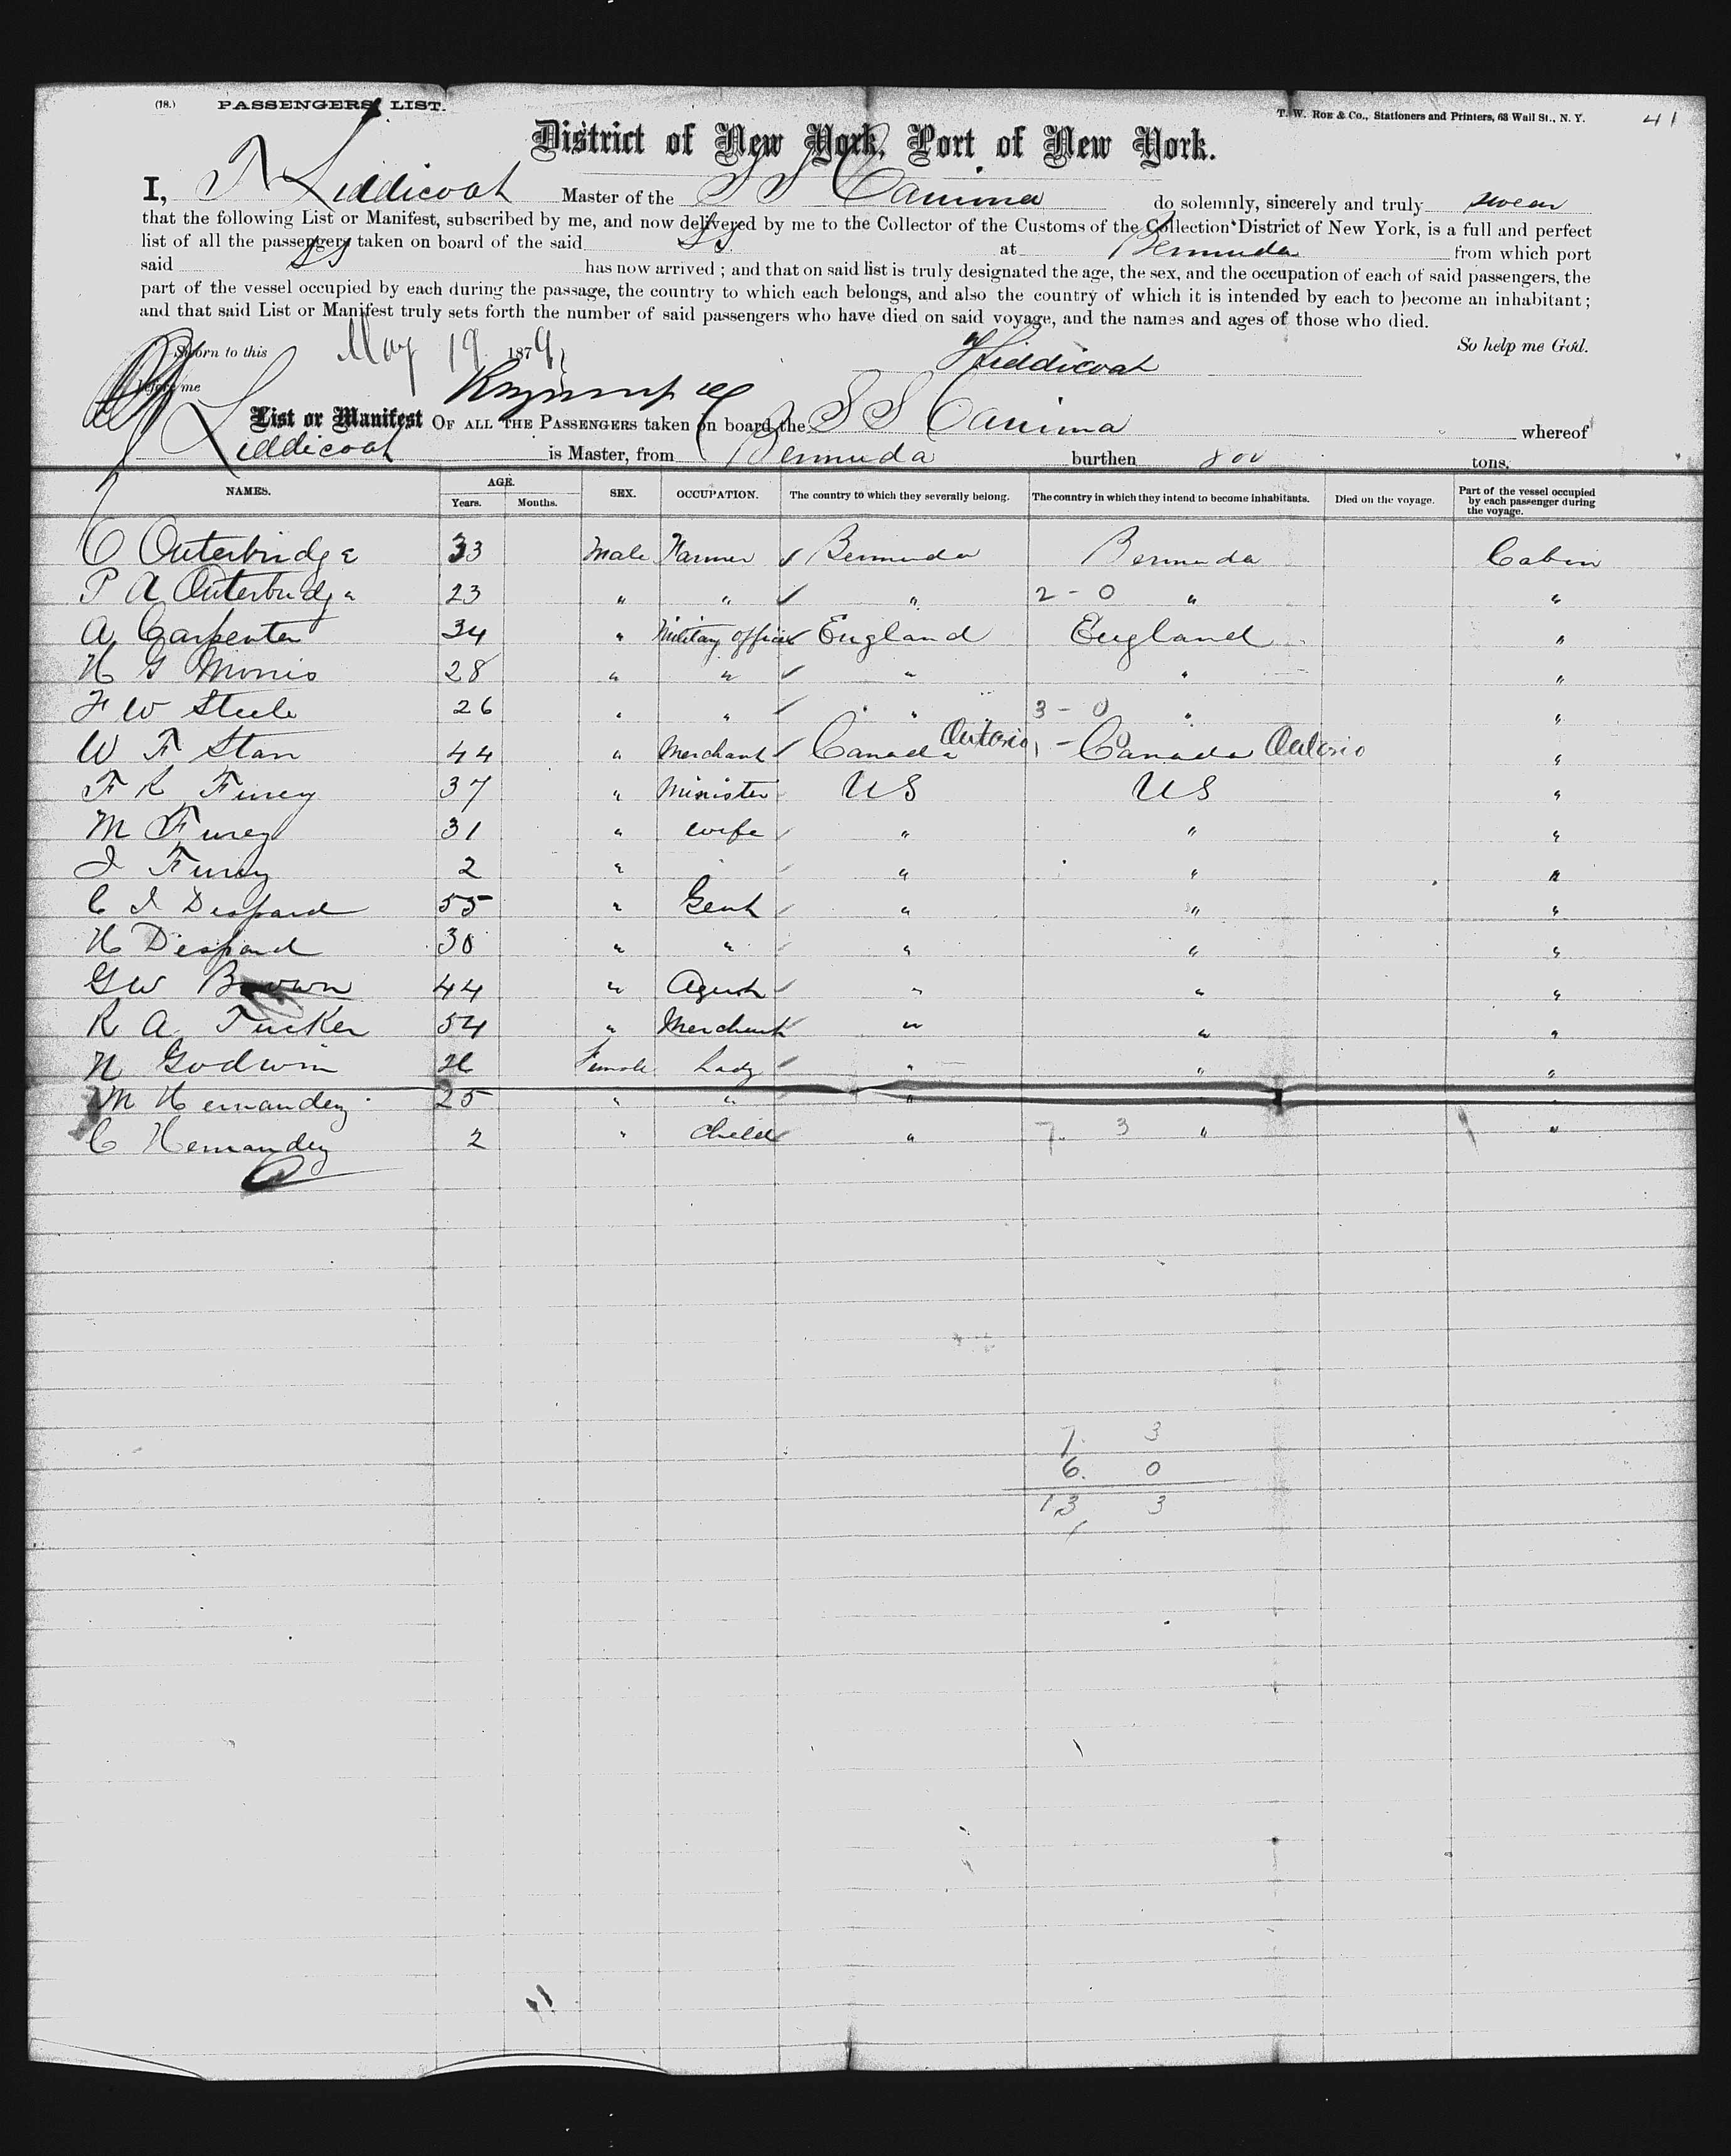 (18.) PASSENGERS LIST. T. W. Roe & Co., Stationers and Printers, 63 Wall St., N. Y. 41
District of New York, Port of New York.
I, T Liddicoat Master of the S S Canima do solemnly, sincerely and truly swear
that the following List or Manifest, subscribed by me, and now delivered by me to the Collector of the Customs of the Collection District of New York, is a full and perfect
list of all the passengers taken on board of the said SS at Bermuda from which port
said SS has now arrived ; and that on said list is truly designated the age, the sex, and the occupation of each of said passengers, the
part of the vessel occupied by each during the passage, the country to which each belongs, and also the country of which it is intended by each to become an inhabitant ;
and that said List or Manifest truly sets forth the number of said passengers who have died on said voyage, and the names and ages of those who died.
Sworn to this May 19 1879 Liddicoat So help me God.
before me
List or Manifest OF ALL THE PASSENGERS taken on board the S S Canima whereof
Liddicoat is Master, from Bermuda burthen 800 tons.
NAMES. AGE. Years. Months. SEX. OCCUPATION. The country to which they severally belong. The country in which they intend to become inhabitants. Died on the voyage. Part of the vessel occupied by each passenger during the voyage.
C Outerbridge 33 Male Farmer ✓ Bermuda Bermuda Cabin
P A Outerbridge 23 " " ✓ " 2 - 0 " "
A Carpenter 34 " Military officer ✓ England England "
H G Morris 28 " " ✓ " " "
F W Steele 26 " " ✓ " " 3 - 0 " "
W F Starr 44 " Merchant ✓ Canada Ontario 1 - 0 Canada Ontario "
F R Furey 37 " Minister US US "
M Furey 31 " wife ✓ " " "
J Furey 2 " ✓ " " "
C I Despard 55 " Gent ✓ " " "
H Despard 30 " " ✓ " " "
G W Brown 44 " Agent ✓ " " "
R A Tucker 54 " Merchant ✓ " " "
N Godwin 26 Female Lady ✓ " " "
M Hernandez 25 " " " " "
C Hernandez 2 " Child ✓ " 7. 3 " "
7. 3
6. 0
13 3